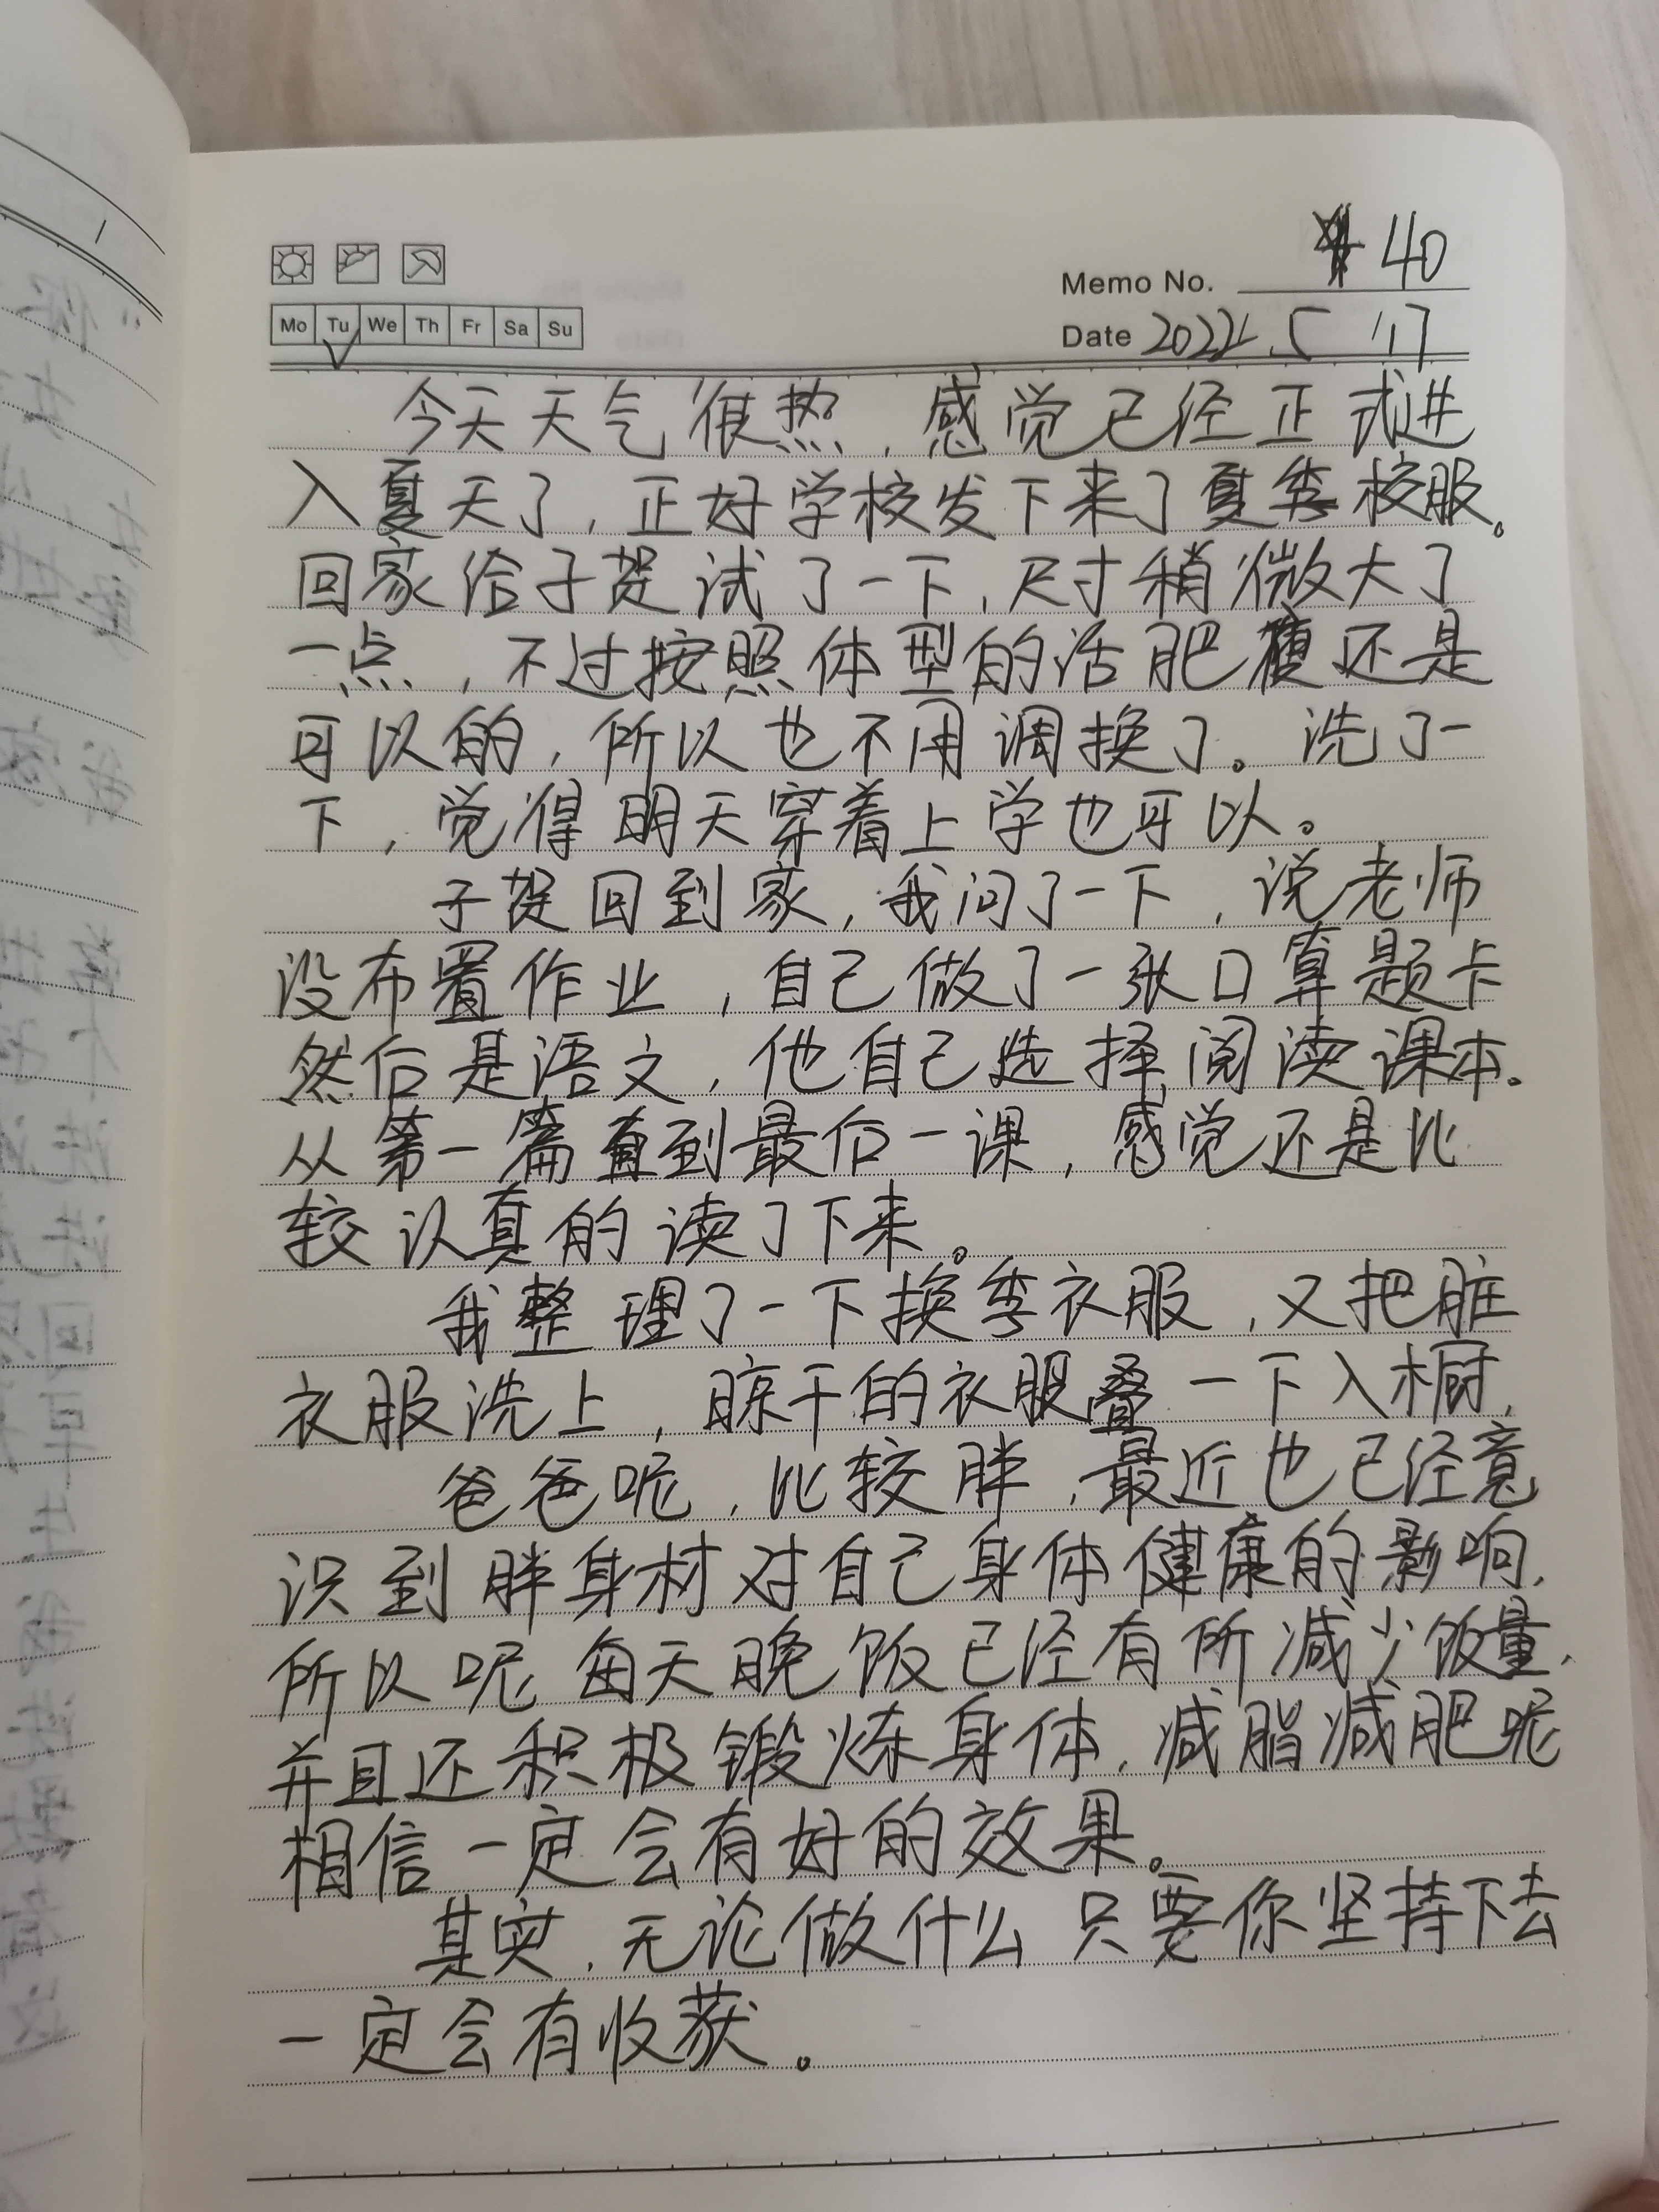 Memo No. 40
Mo Tu We Th Fr Sa Su
Date 2022.5.17
今天天气很热，感觉已经正式进
入夏天了，正好学校发下来了夏季校服。
回家给子贺试了一下，尺寸稍微大了
一点，不过按照体型的话肥瘦还是
可以的，所以也不用调换了。洗了一
下，觉得明天穿着上学也可以。
子贺回到家，我问了一下，说老师
没布置作业，自己做了一张口算题卡
然后是语文，他自己选择阅读课本。
从第一篇直到最后一课，感觉还是比
较认真的读了下来。
我整理了一下换季衣服，又把脏
衣服洗上，晾干的衣服叠一下入橱，
爸爸呢，比较胖，最近也已经意
识到胖身材对自己身体健康的影响，
所以呢每天晚饭已经有所减少饭量，
并且还积极锻炼身体，减脂减肥呢
相信一定会有好的效果。
其实，无论做什么只要你坚持下去
一定会有收获。